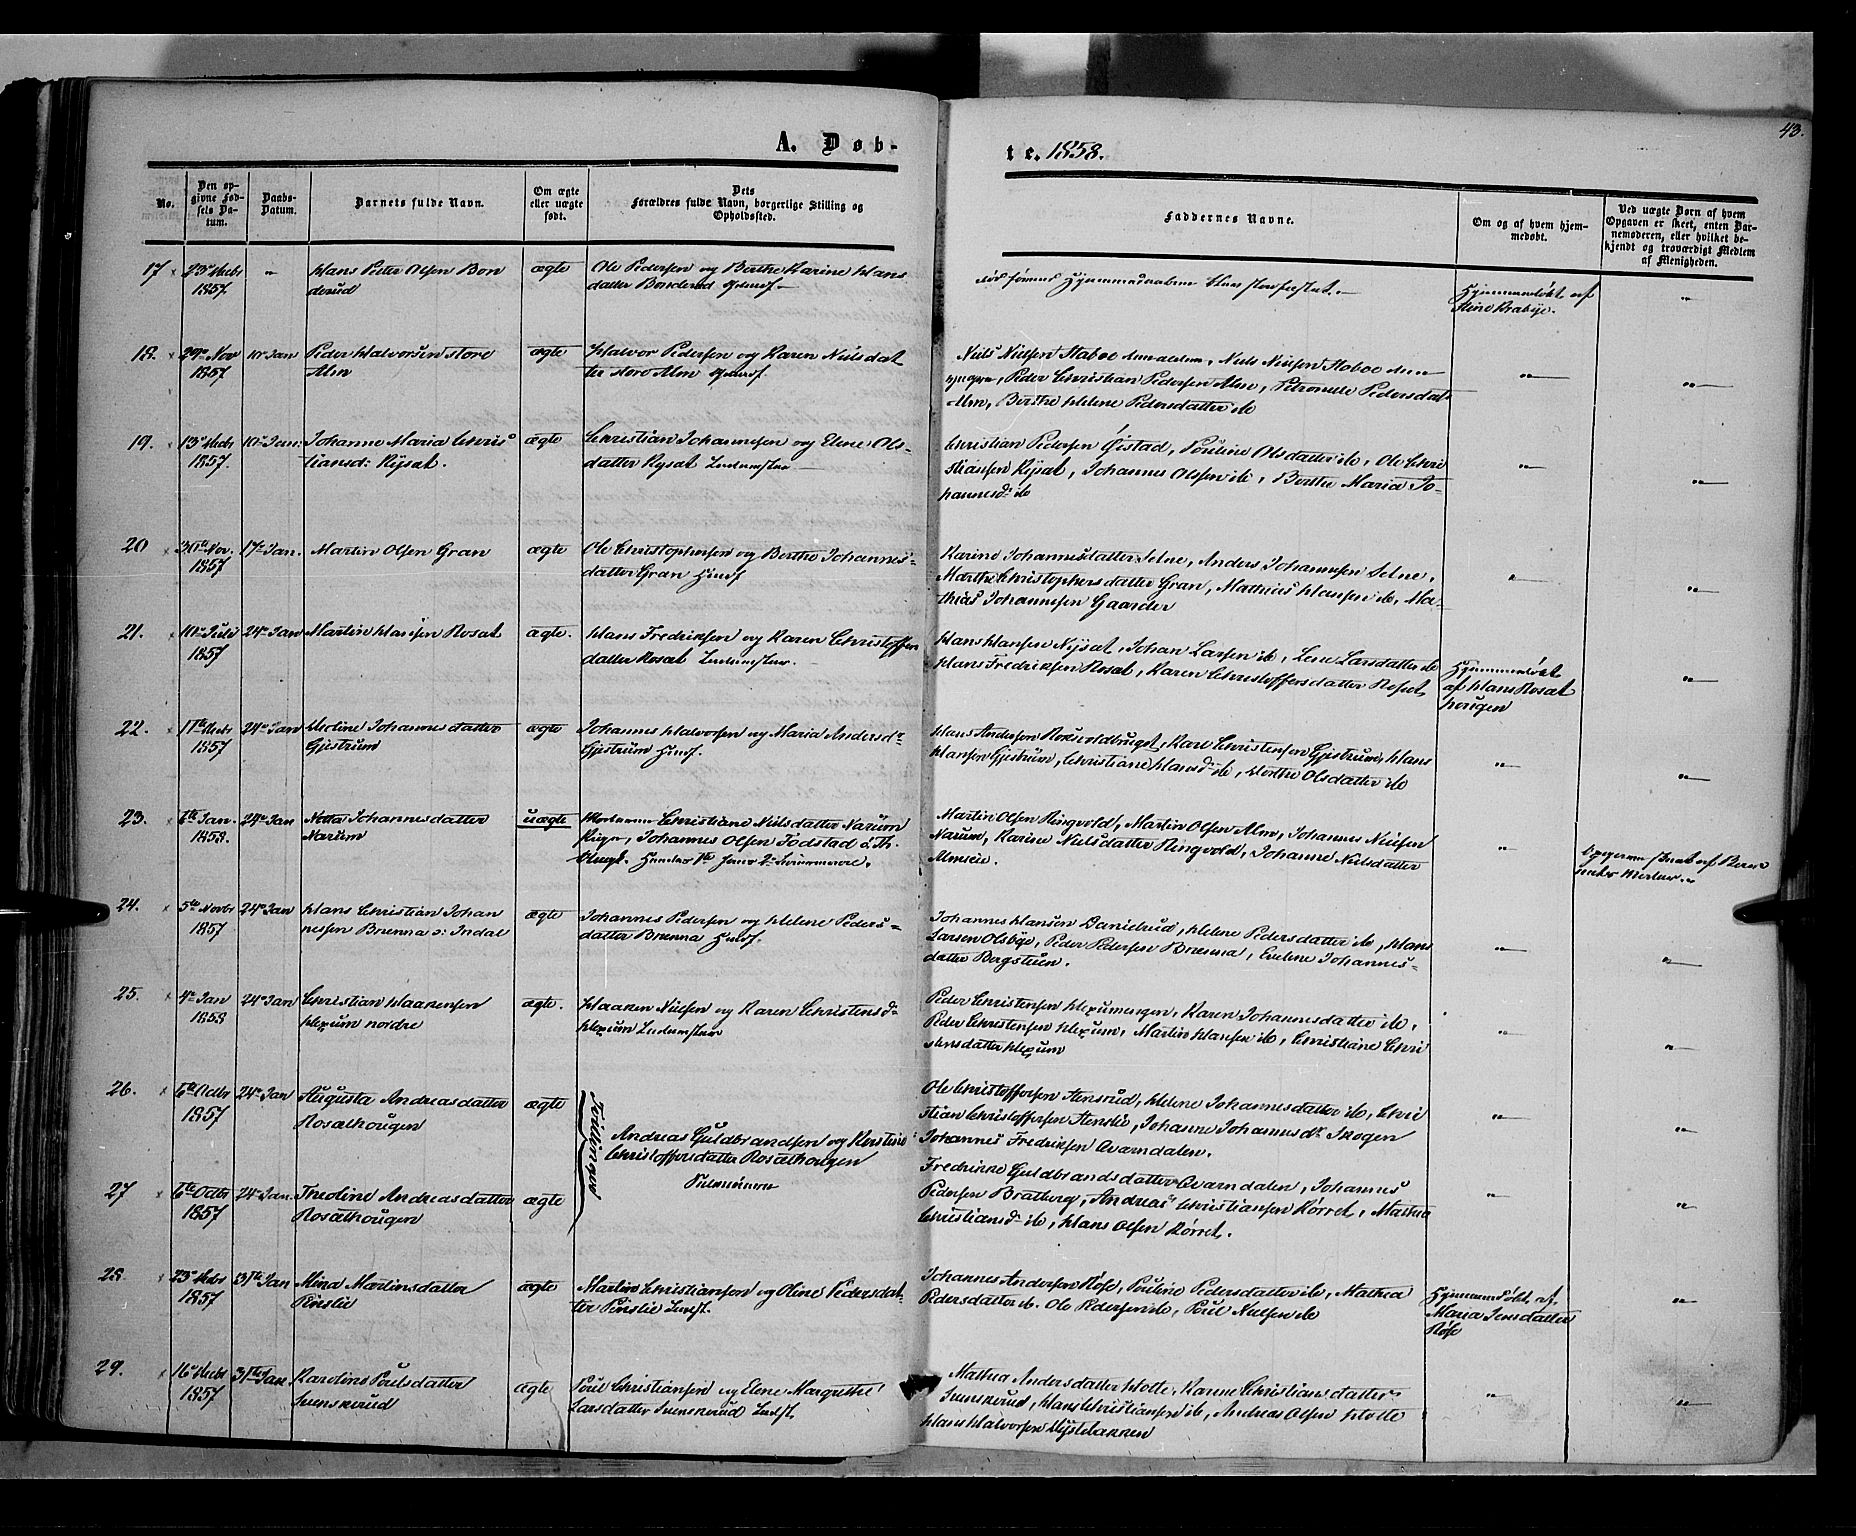 A. Døb-
te. 1858.
43.
No.
Den op-
givne Fød-
sels Da-
tum.
Daabs-
Datum.
Barnets fulde Navn.
Om ægte
eller uægte
født.
Dets
Forældres fulde Navn, borgerlige Stilling og
Opholdssted.
Faddernes Navne.
Om og af hvem hjem-
medøbt.
Ved uægte Børn af hvem
Opgaven er skeet, enten Bar-
nemoderen, eller hvilket be-
kjendt og troværdigt Medlem
af Menigheden.
17
23
1857.
Hans Peter Olsen Bon
derud
ægte
Ole Pedersen og Berthe Karine Hans
datter Bonderud
Hjemmedøbt af
Stine Kraby.
18.
29 Nov
1857
10 Jan
Peder Halvorsen store
Alm
ægte
Halvor Pedersen og Karen Nielsdat
ter store Alm
Niels Nielsen Staboe den ældre, Niels Nielsen Staboe den
yngre, Peder Christian Pedersen Alm, Petronelle Pedersdat
Alm, Berthe Helene Pedersdatter ib
19.
13 Decbr
1857.
10 Jan.
Johanne Maria Chris
tiansd: Rysat.
ægte
Christian Johannesen og Eline Ols-
datter Rysat
Christian Pedersen Øistad, Pouline Olsdatter ib, Ole Chri
stiansen Rysat, Johannes Olsen ib, Berthe Maria Jo-
hannesd: ib
20
30te Nov.
1857
17 Jan.
Martin Olsen Gran
ægte
Ole Christophersen og Berthe Johannes-
datter Gran Huusf
Karine Johannesdatter Selne, Anders Johannesen Selne,
Marthe Christophersdatter Gran, Mathias Hansen ib, Ma-
thias Johannesen Gaarder
21.
10 Juli
1857
24 Jan
Martin Hansen Rosat
ægte.
Hans Fredriksen og Karen Christoffers
datter Rosat
Hans Hansen Nysat, Johan Larsen ib, Lene Larsdatter ib
Hans Fredriksen Rosat, Karen Christoffersdatter Rosat,
Hjemmedøbt
af Hans Rosat
hougen
22.
11te Decbr
1857
24 Jan
Johannesdatter
Gjestrüm
ægte
Johannes Halvorsen og Maria Andersdr
Gjestrüm Huusf.
Hans Andersen, Kari Christensen Gjestrüm, Hans
Hansen Gjestrüm, Christiane Hansd ib, Olsdatter ib
23.
6te Jan.
1858.
24 Jan
Johannesdatter
Narüm
uægte
Christiane Nielsdatter Narüm
Pige, Johannes Olsen Fodstad
Martin Olsen Ringvold, Martin Olsen Alm, Johannes Nielsen
Narum, Karine Nielsdatter Ringvold, Johanne Nielsdatter
24.
5te Novbr
1857
24 Jan
Hans Christian Johan
nesen Brenna
ægte
Johannes Pedersen og Helene Peders-
datter Brenna Huusf.
Johannes Hansen Danielrud, Helene Pedersdatter ib, Hans
Larsen Olsbye, Peder Pedersen Brenna, Eveline Johannes-
datter Bergstuen.
25.
4 Jan
1858
24 Jan
Christian Haakensen
Hexum nordre
ægte.
Haaken Nielsen og Karen Christensd
Hexum
Peder Christensen Hexumengen, Karen Johannesdatter ib,
Peder Christensen Hexum, Martin Hansen ib, Christiane Chri
stensdatter Hexum
26.
6te Octbr
1857
24 Jan
Augusta Andreasdatter
Rosathougen
ægte
Tvillinger
Andreas Guldbrandsen og Kerstine
Christoffersdatter Rosathougen
Ole Christoffersen Stensrud, Helene Johannesdatter ib, Chri
stian Christoffersen Stenslie, Johanne Johannesdr Skogen
Johannes Fredriksen Qværndalen.
27
6te Octbr
1857
24 Jan.
Theoline Andreasdatter
Rosathougen
ægte
Fredrikke Guldbrandsdatter Qværndalen, Johannes
Pedersen Bratberg, Andreas Christiansen Rørret, Mathea
Christiansd ib, Hans Olsen Rørret.
28.
23 Decbr
1857
31te Jan
Mina Martinsdatter
Pünslie
ægte
Martin Christiansen og Oline Pedersdat
ter Pünslie
Johannes Andersen Røse, Pouline Pedersdatter ib, Mathea
Pedersdatter ib, Ole Pedersen ib, Poul Nielsen ib
Hjemmedøbt af
Maria Jensdatter
Røse
29.
16 Decbr
1857
31te Jan.
Karoline Poulsdatter
Svenskerud
ægte
Poul Christiansen og Elene Margrethe
Larsdatter Svenskerud
Mathea Andersdatter Hotte, Karine Christiansdatter
Svenskerud, Hans Christiansen ib, Andreas Olsen Hotte
Hans Halvorsen